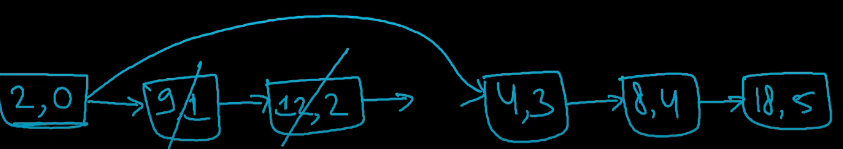 2,0 9,1 12,2 4,3 8,4 18,5